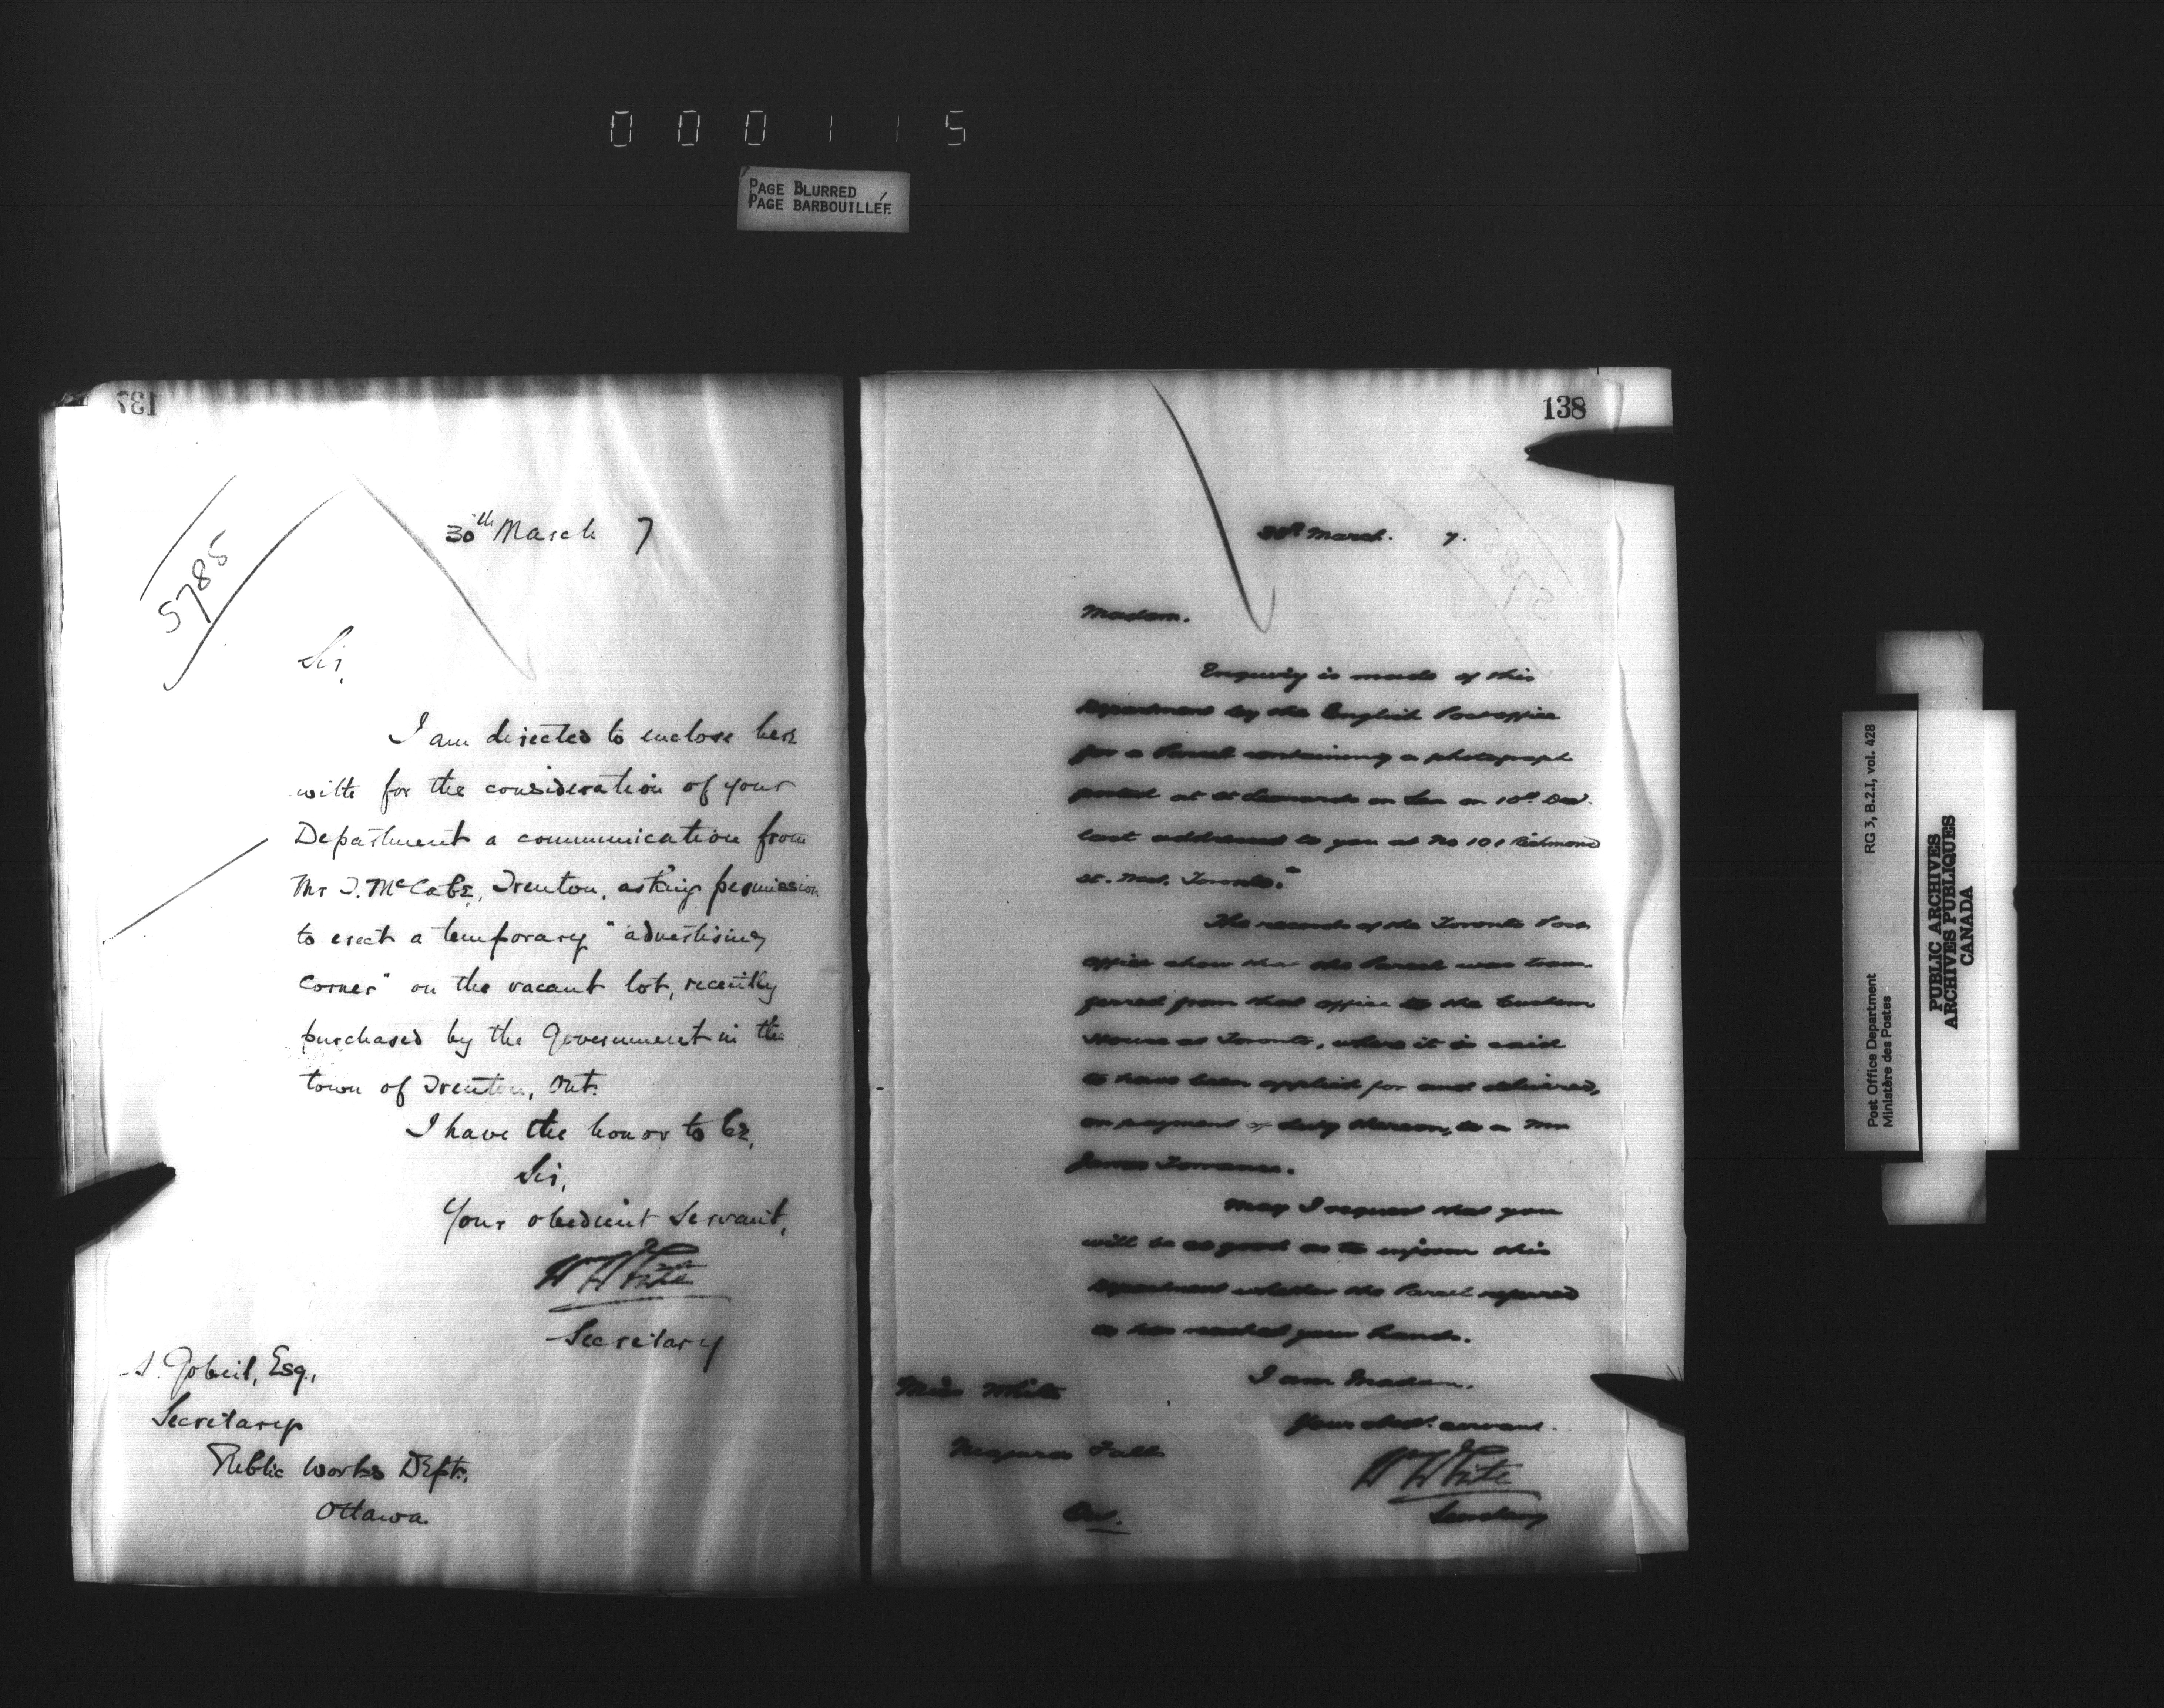 000115
PAGE BLURRED
PAGE BARBOUILLÉE
137
5785
30th March 7
Sir,
I am directed to enclose here
with for the consideration of your
Department a communication from
Mr T. McCabe, Trenton, asking permission
to erect a temporary "advertising
corner" on the vacant lot, recently
purchased by the Government in the
town of Trenton, Ont.
I have the honor to be,
Sir,
Your obedient Servant,
Wm White
Secretary
A. Gobeil, Esq.,
Secretary
Public Works Dept.,
Ottawa.
138
30th March. 7.
Madam.
Enquiry is made of this
Department by the English Post office
for a Parcel containing a photograph
posted at St Leonards on Sea on 10th Dec.
last addressed to you at No 101 Richmond
St. West, Toronto.
The records of the Toronto Post
office show that the Parcel was trans-
ferred from that office to the Custom
House at Toronto, where it is said
to have been applied for and delivered,
on payment of duty thereon, to a Mr
James Torrance.
May I request that you
will be so good as to inform this
Department whether the Parcel referred
to has reached your hands.
I am Madam,
Your obedt. servant.
Wm White
Secretary
Miss White
Niagara Falls
Ont.
Post Office Department
Ministère des Postes
RG 3, B.2.I, vol. 428
PUBLIC ARCHIVES
ARCHIVES PUBLIQUES
CANADA